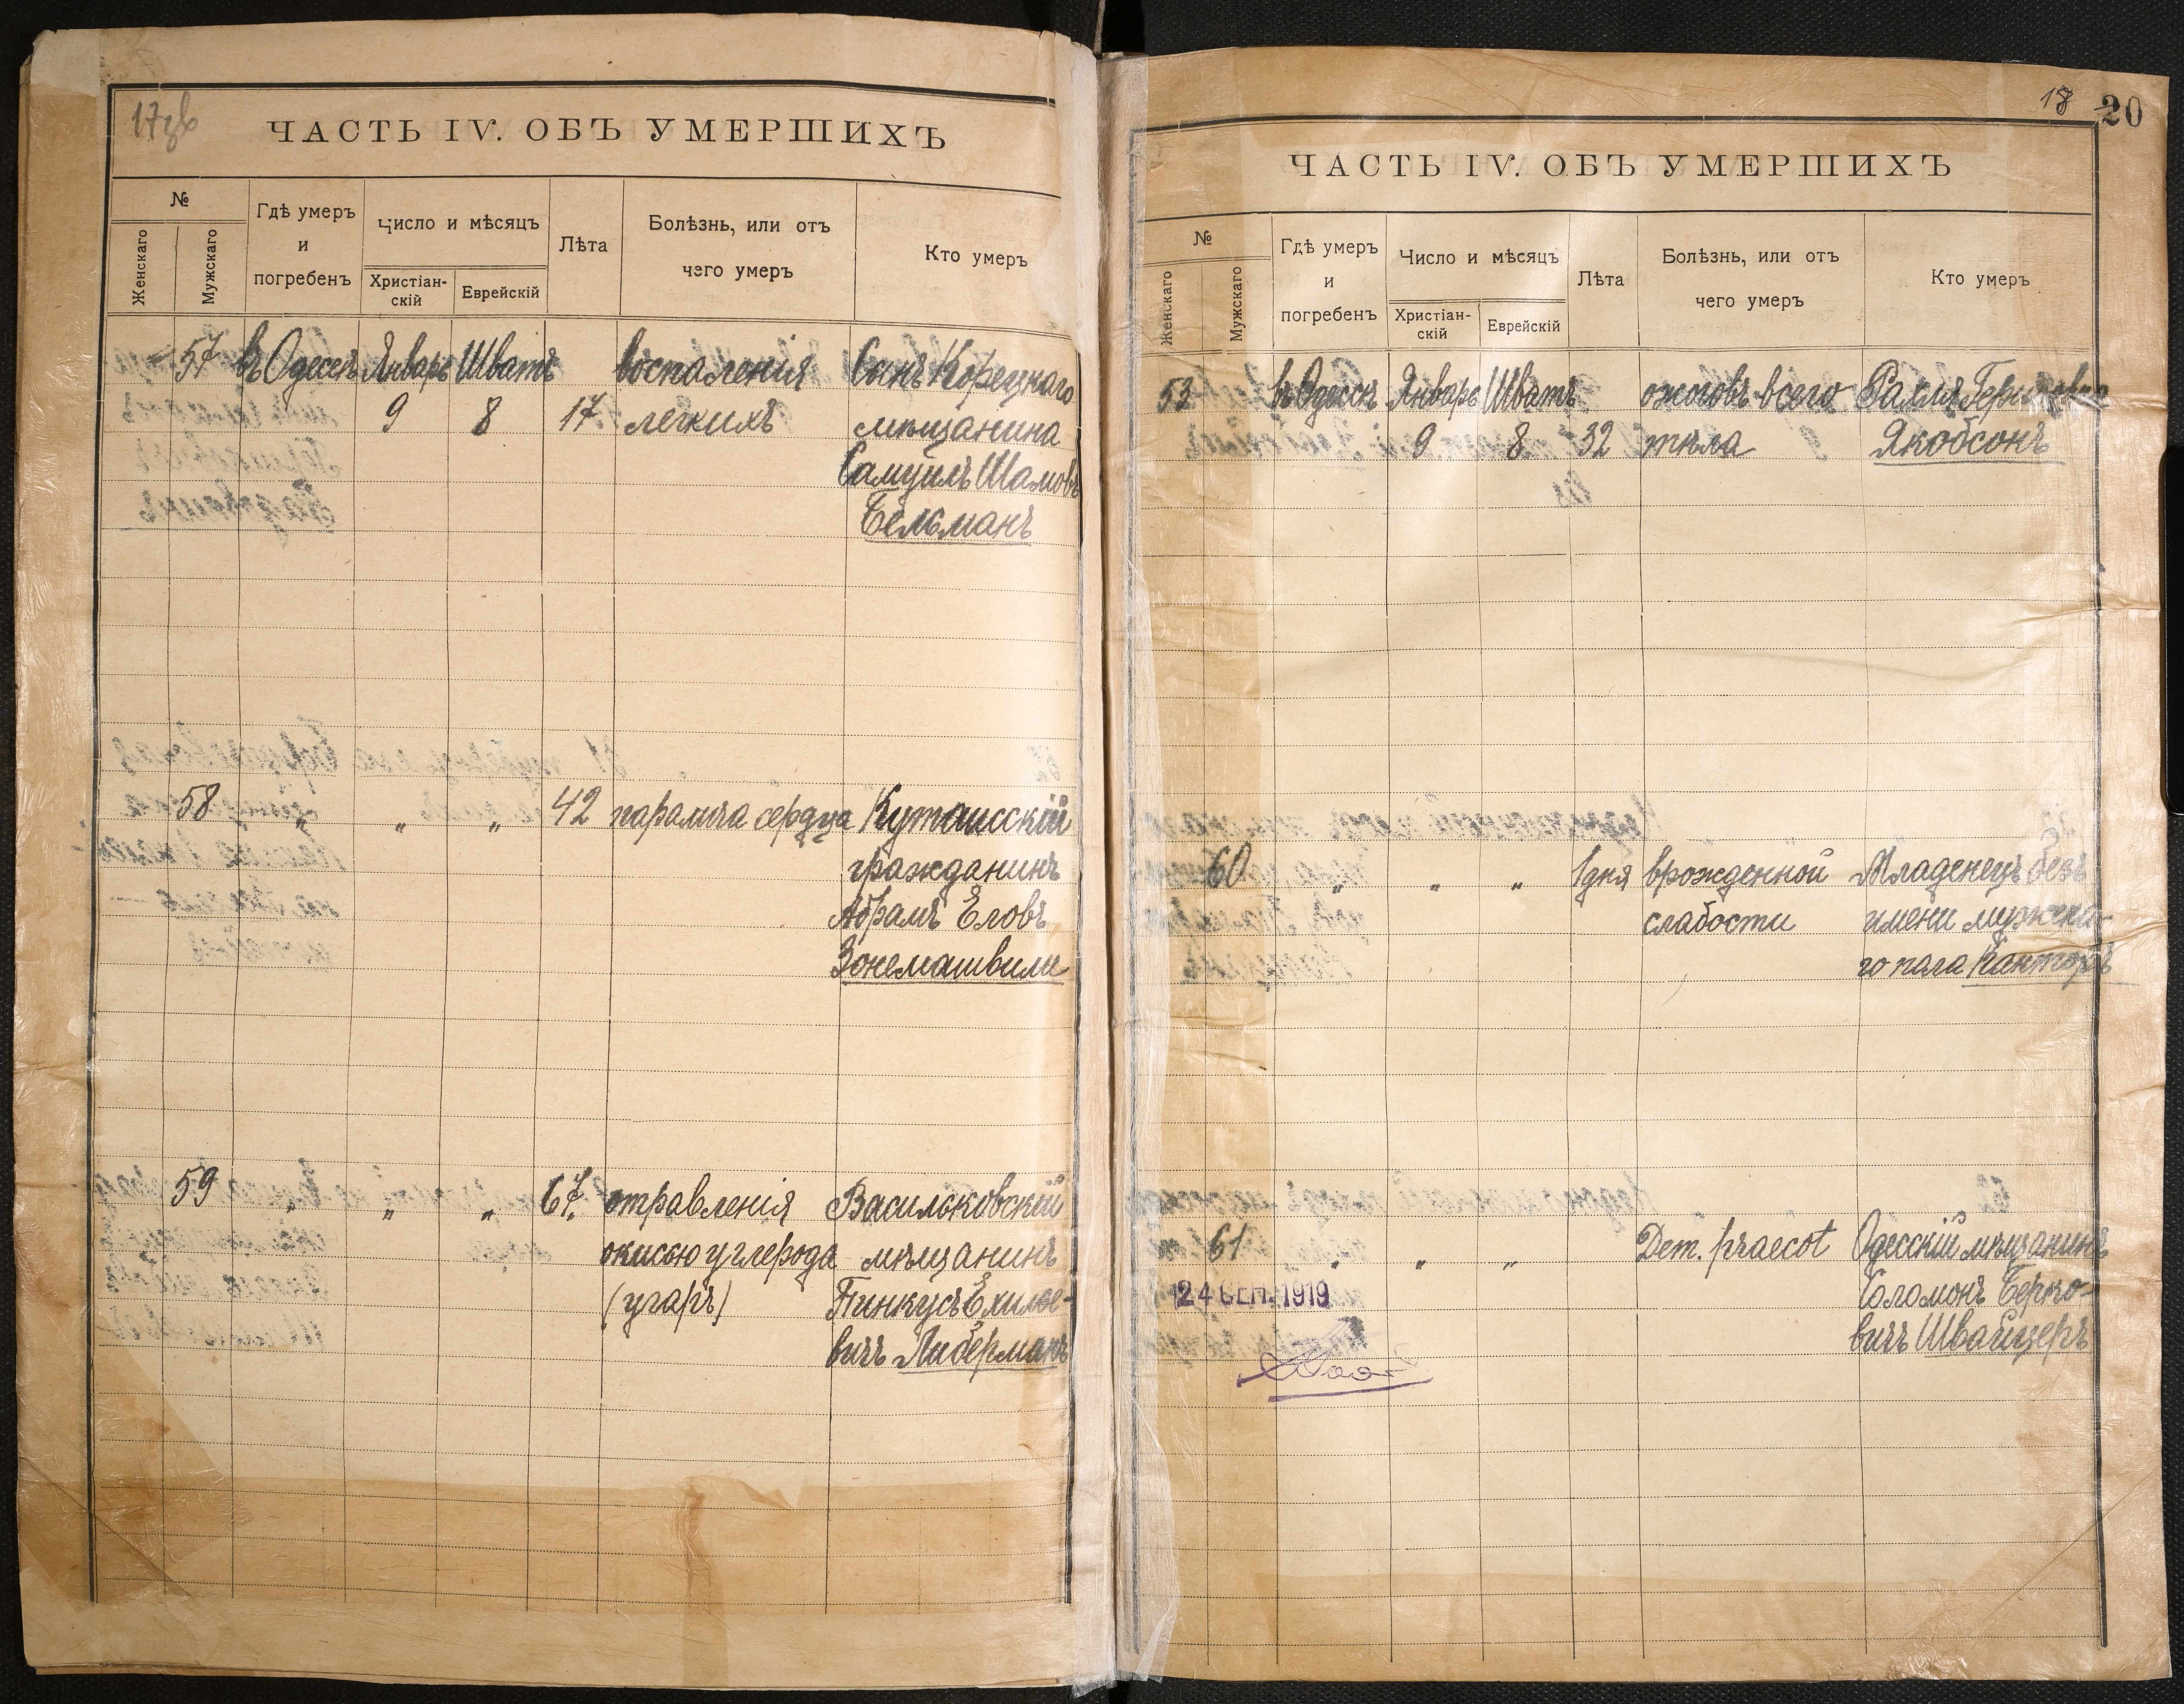 ЧАСТЬ IV. ОБЪ УМЕРШИХЪ
№
Женскаго
Мужскаго
Гдѣ умеръ
и
погребенъ
Число и мѣсяцъ
Христіан-
скій
Еврейскій
Лѣта
Болѣзнь, или отъ
чего умеръ
Кто умеръ
57 въ Одессѣ Январь Шватъ воспаленія Сынъ Корецкаго
9 8 17 легкихъ мѣщанина
Самуилъ Шамовъ
Бельманъ
58 " " " 42 паралича сердца Кутаисскій
гражданинъ
Абрамъ Еловъ
Зонемашвили
59 " " " 67. отравленія Васильковскій
окисью углерода мѣщанинъ
(угаръ) Пинкусъ Ехилье-
вичъ Либерманъ
18 20
ЧАСТЬ IV. ОБЪ УМЕРШИХЪ
№
Женскаго
Мужскаго
Гдѣ умеръ
и
погребенъ
Число и мѣсяцъ
Христіан-
скій
Еврейскій
Лѣта
Болѣзнь, или отъ
чего умеръ
Кто умеръ
53 въ Одессѣ Январь Шватъ ожоговъ всего Рахля
9 8 32 тѣла Якобсонъ
60 " " " 1 дня врожденной Младенецъ безъ
слабости имени мужска-
го пола Канторъ
61 " " " Dem. praecot Одесскій мѣщанинъ
24 СЕН. 1919 Соломонъ Берко-
вичъ Швайцеръ